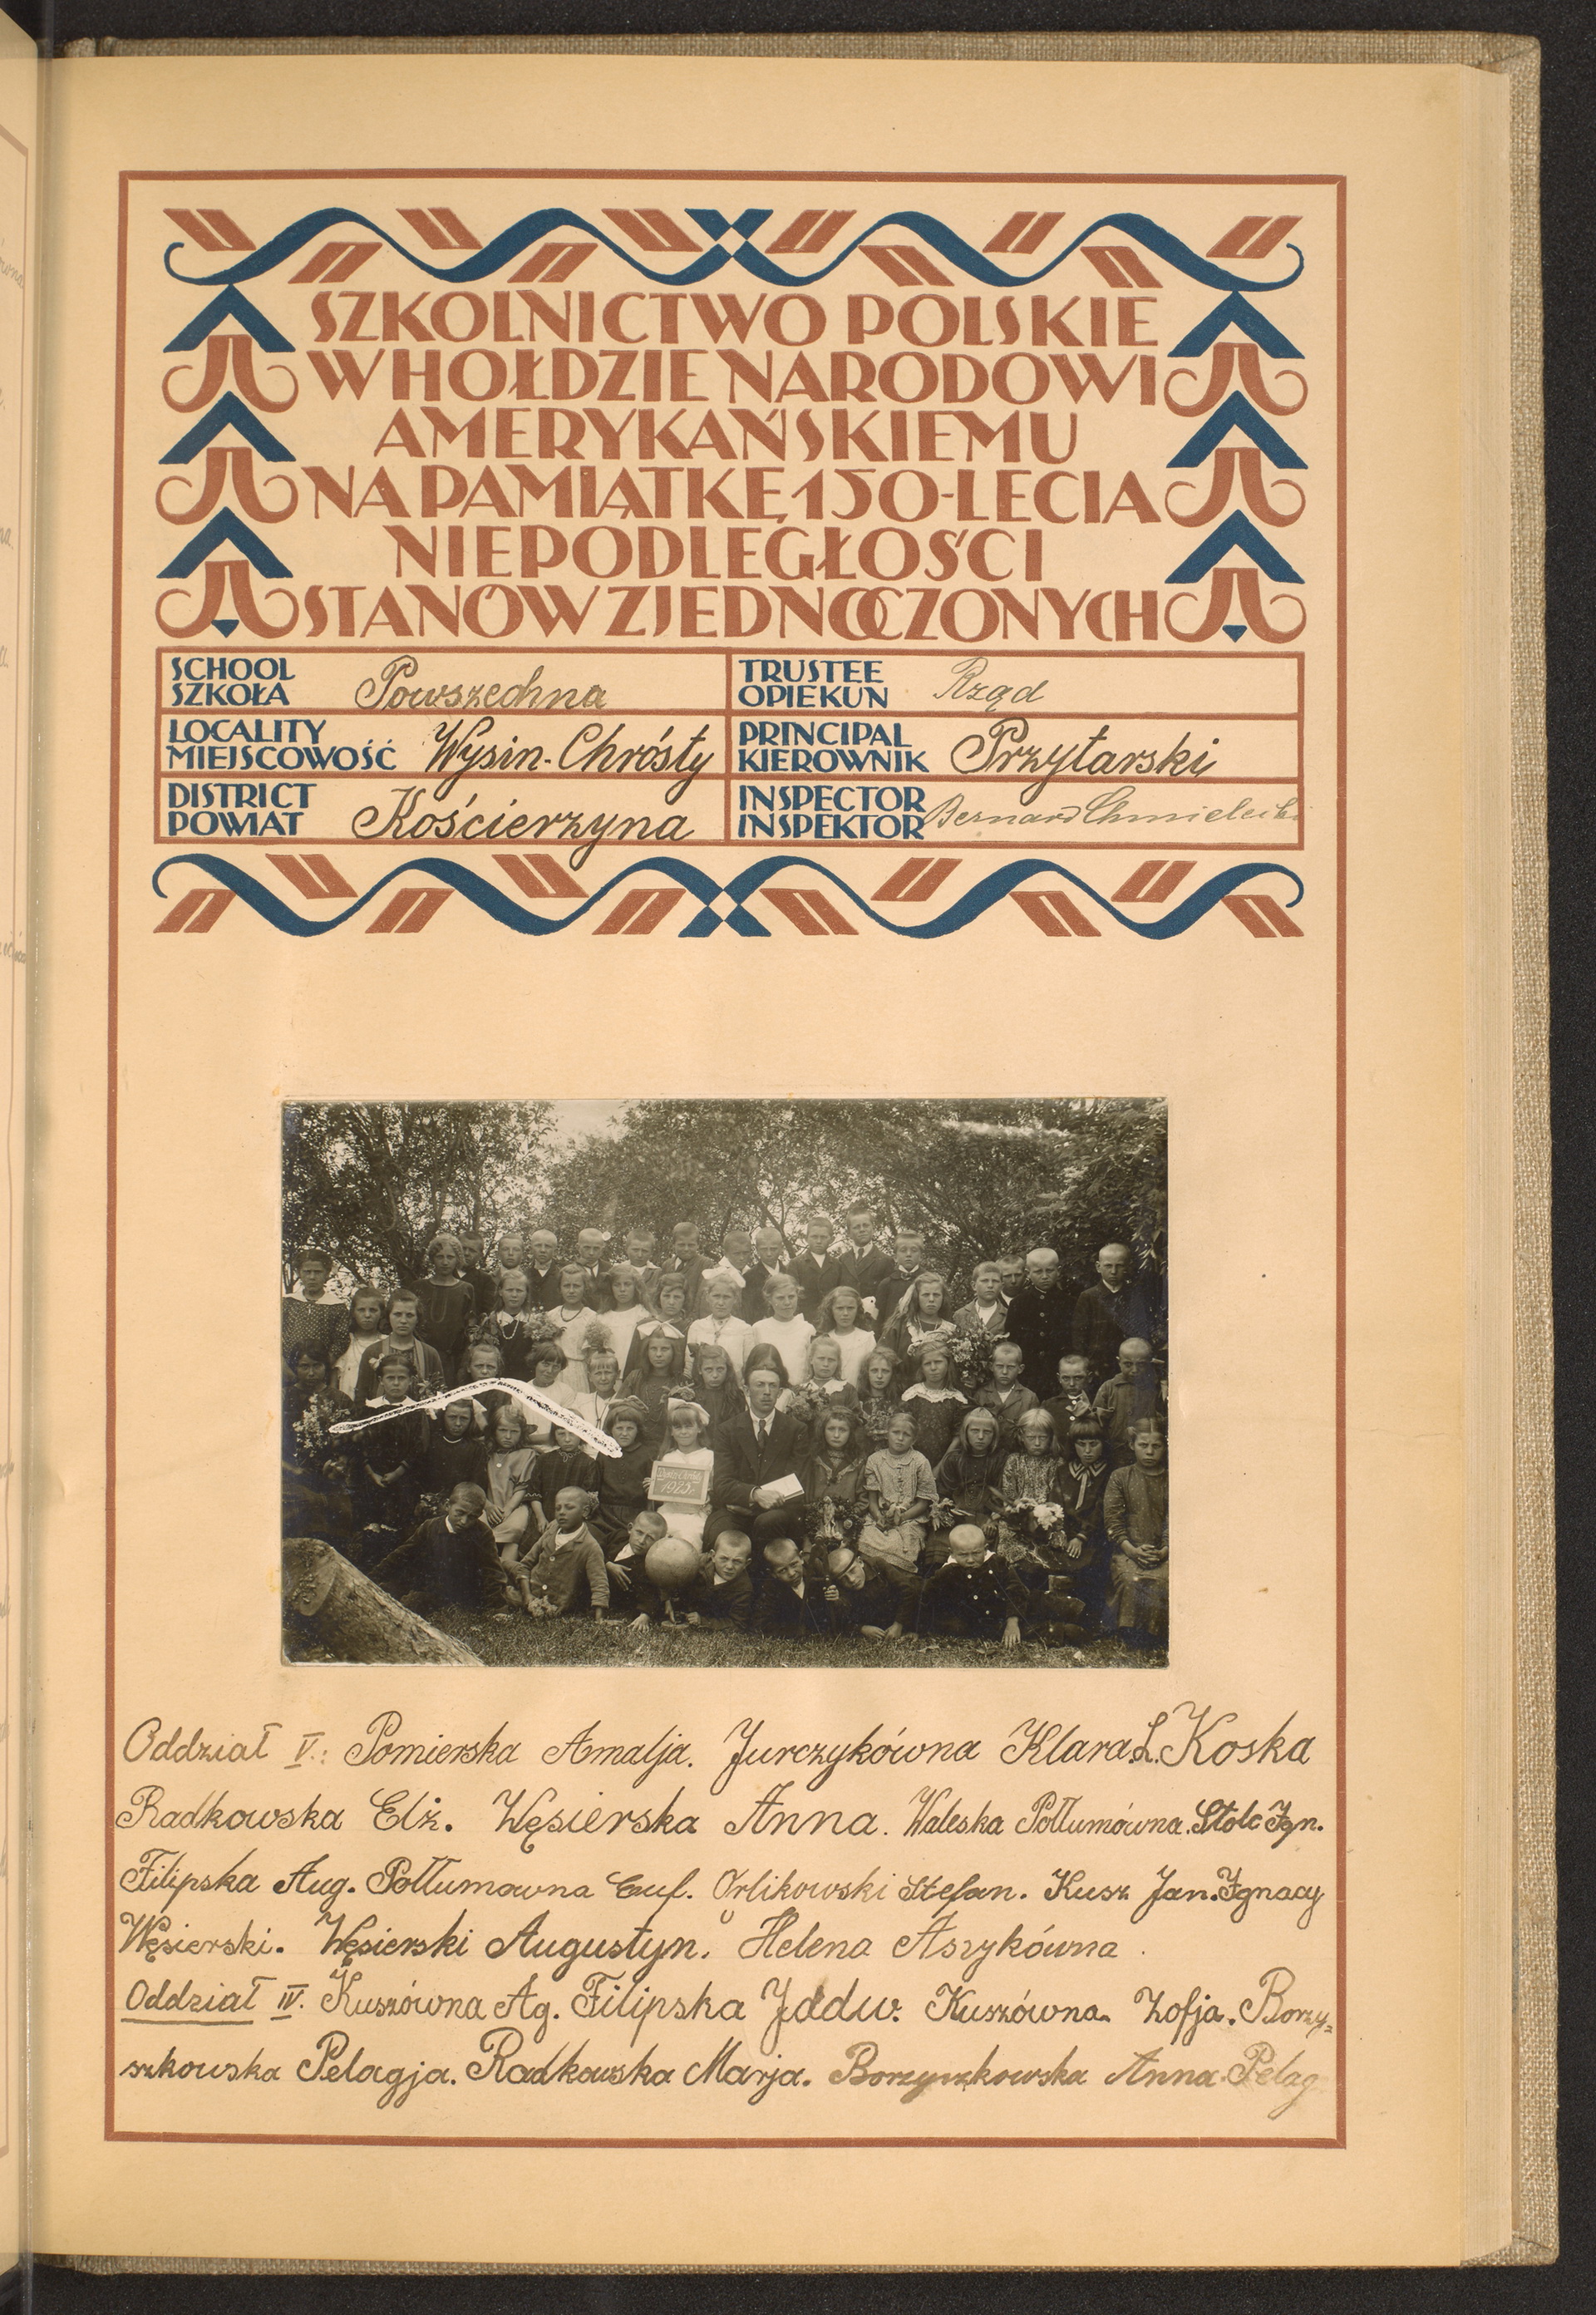 SZKOLNICTWO POLSKIE
W HOŁDZIE NARODOWI
AMERYKAŃSKIEMU
NA PAMIĄTKĘ 150-LECIA
NIEPODLEGŁOŚCI
STANÓW ZJEDNOCZONYCH
SCHOOL
SZKOŁA Powszechna
TRUSTEE
OPIEKUN Rząd
LOCALITY
MIEJSCOWOŚĆ Wysin-Chrósty
PRINCIPAL
KIEROWNIK Przytarski
DISTRICT
POWIAT Kościerzyna
INSPECTOR
INSPEKTOR Bernard Chmielecki
1925.
Oddział V.: Pomierska Amalja. Jurczykówna Klara. L. Koska
Radkowska Elż. Węsierska Anna. Waleska Połłumówna. Stolc Ign.
Filipska Aug. Połłumowna Euf. Orlikowski Stefan. Kusz Jan. Ignacy
Węsierski. Węsierski Augustyn. Helena Aszykówna.
Oddział IV. Kuszówna Ag. Filipska Jddw. Kuszówna. Zofja. Borzy=
szkowska Pelagja. Radkowska Marja. Borzyszkowska Anna. Pelag